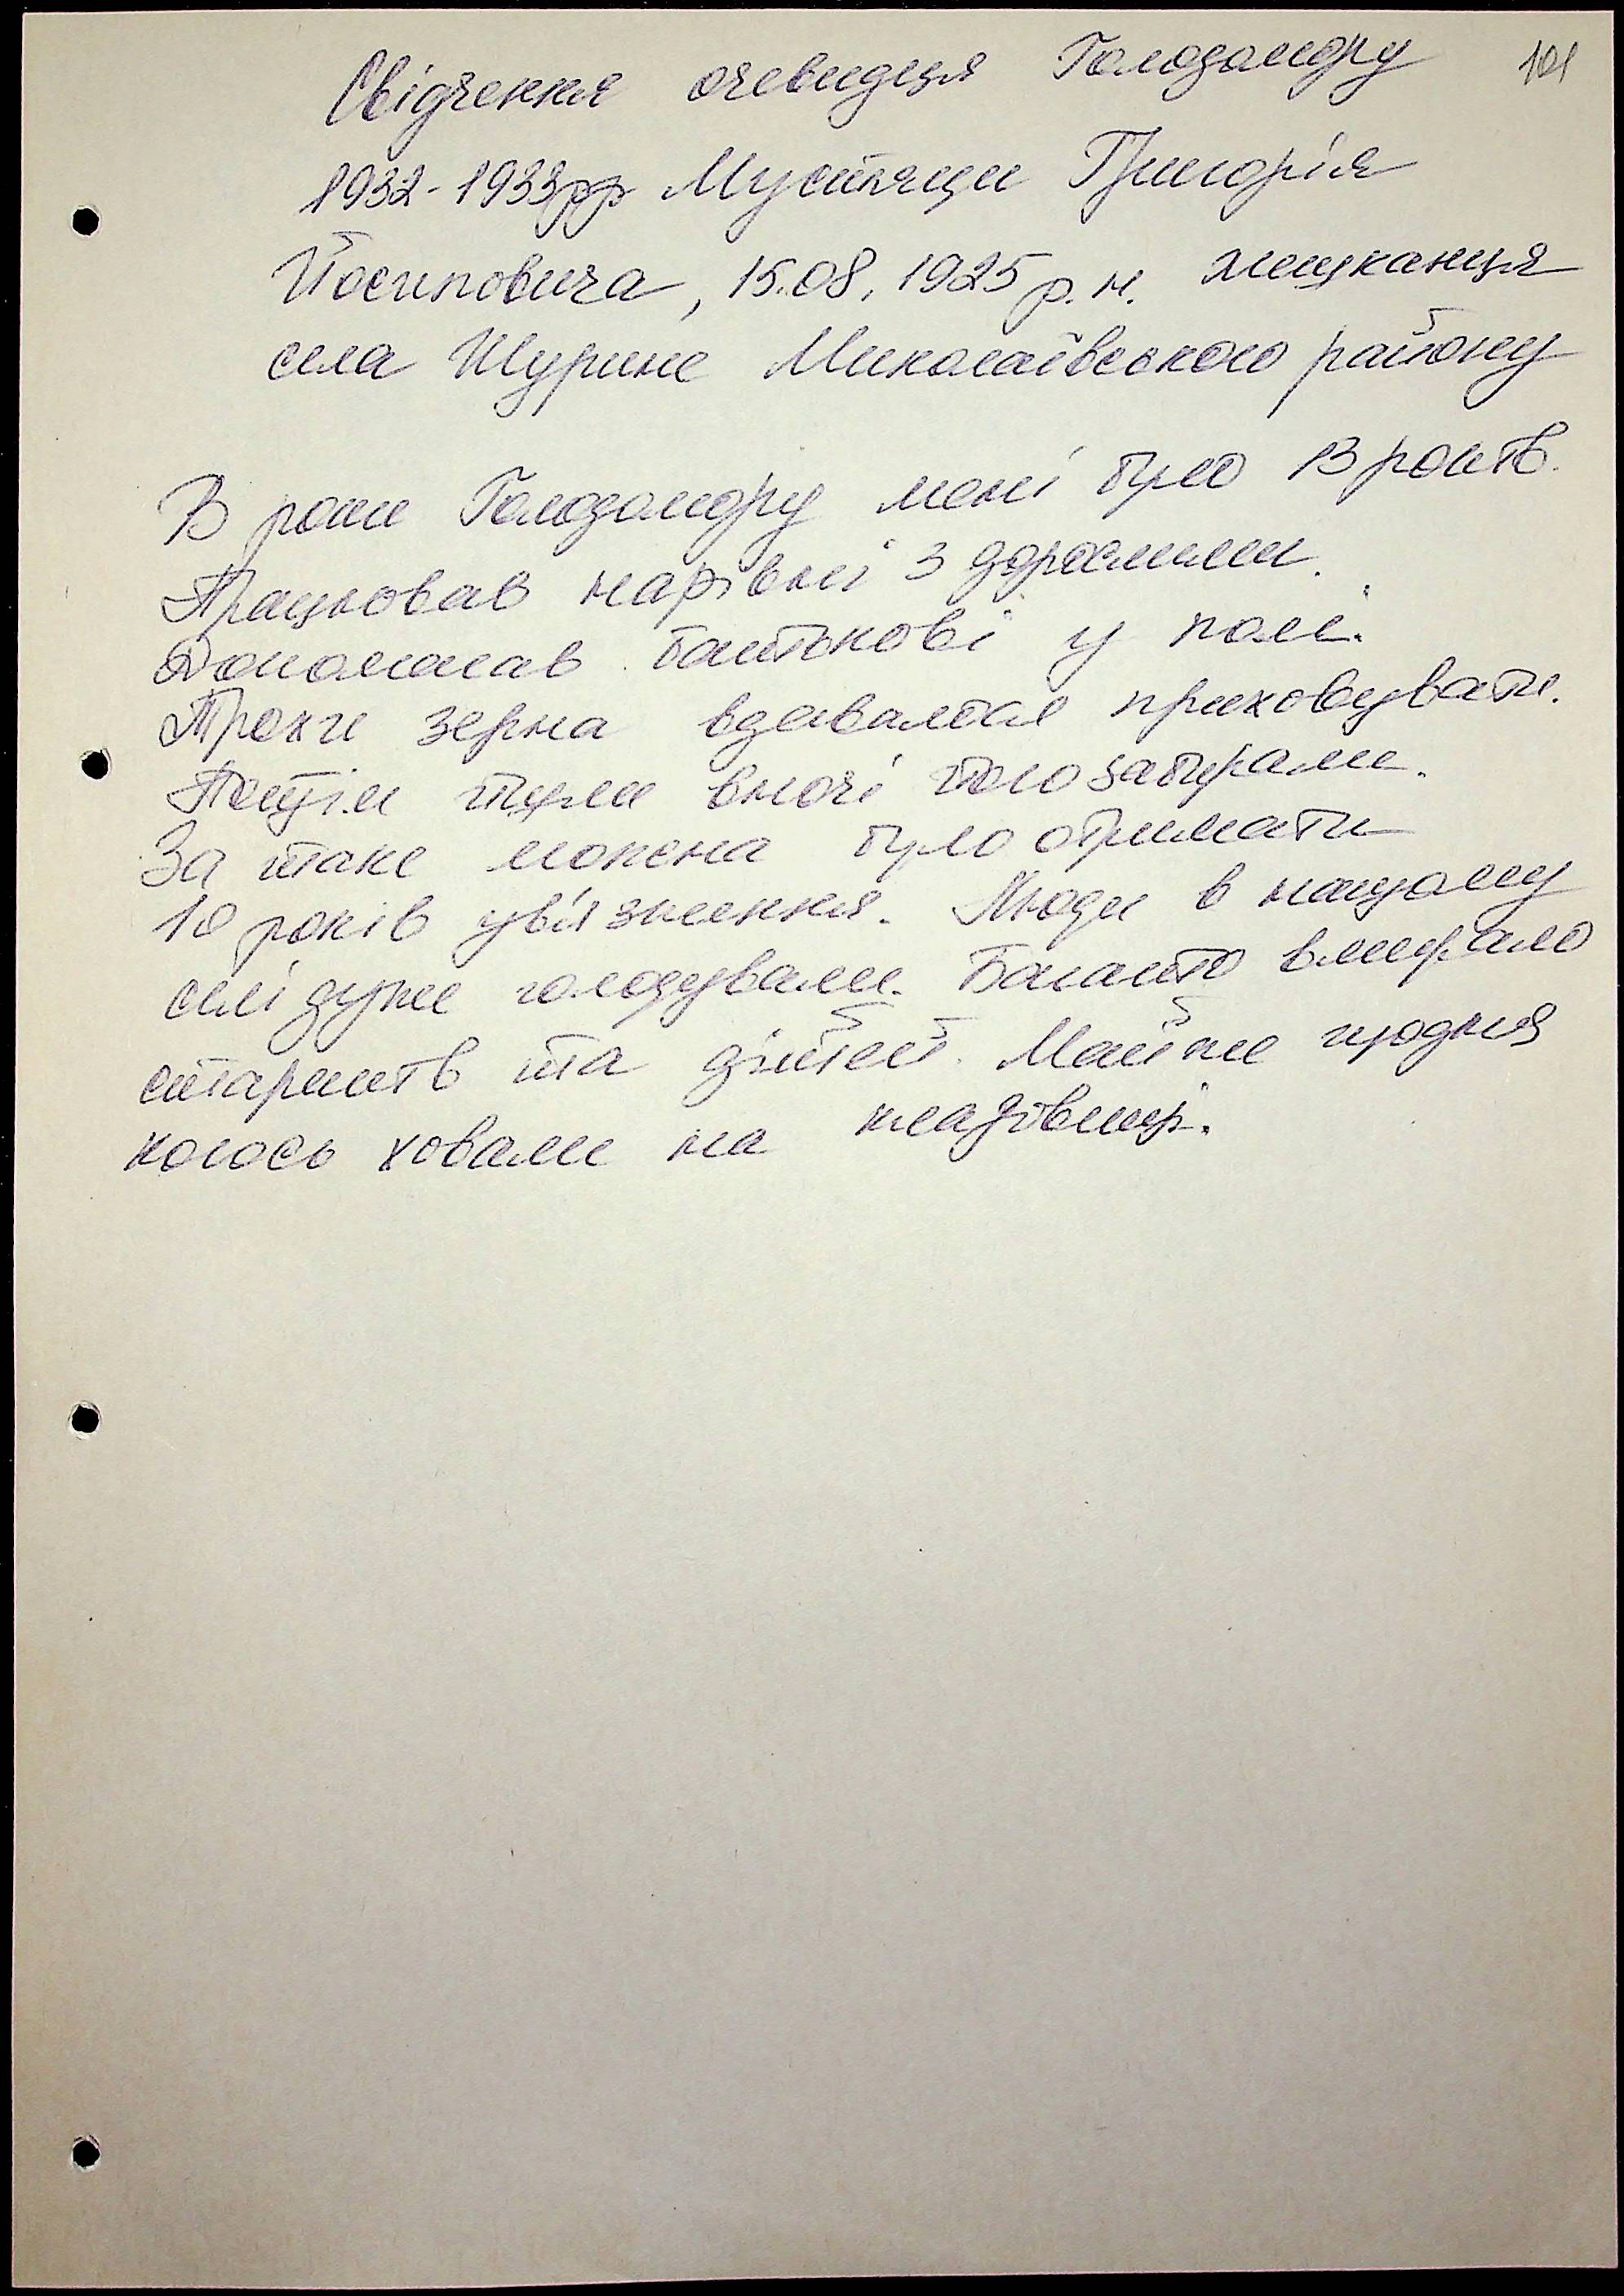 Свідчення очевидця Голодомору 101
1932-1933рр Мустяци Григорія
Йосиповича, 15.08.1925 р.н. мешканця
села Щурине Миколаївського району
В роки Голодомору мені було 13 років.
Працював нарівні з дорослими.
Допомагав батькові у полі.
Трохи зерна вдавалося приховувати.
Потім йшли вночі його забирали.
За таке можна було отримати
10 років ув'язнення. Люди в нашому
селі дуже голодували. Багато вмирало
стариків та дітей. Майже щодня
когось ховали на кладовищі.